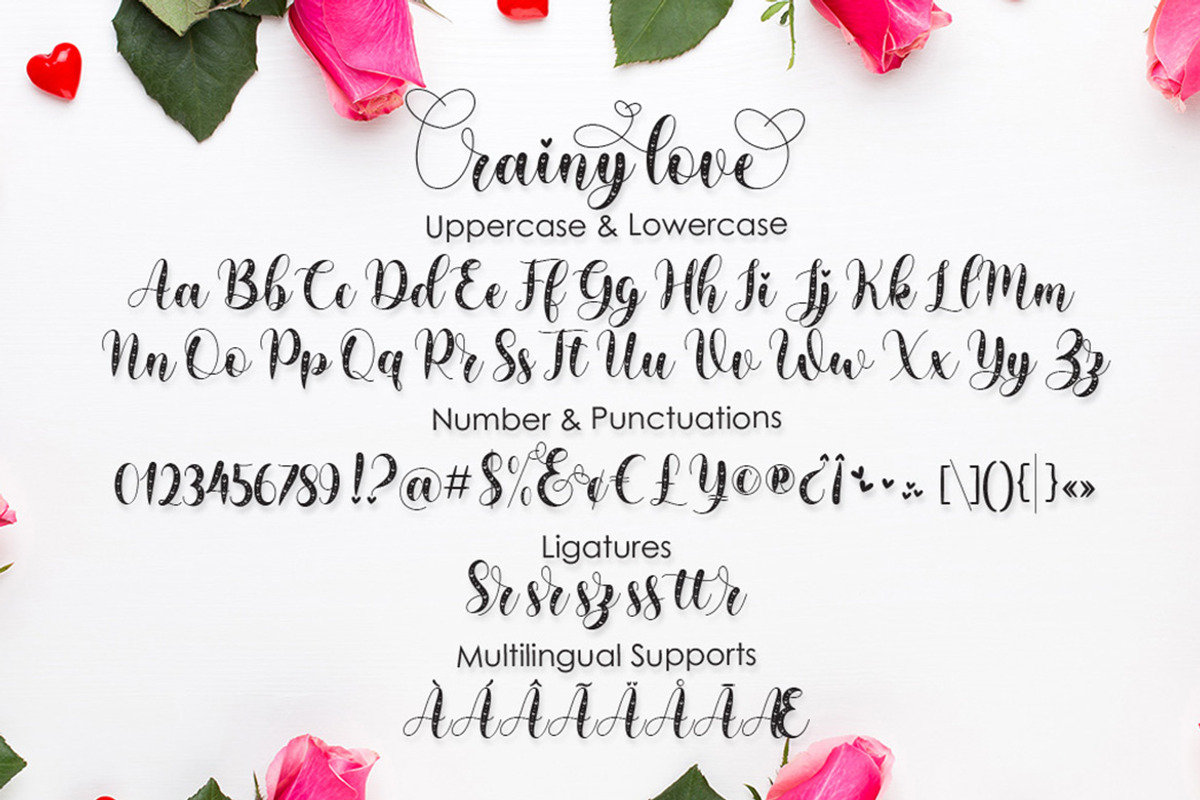 rainy love
Uppercase & Lowercase
Aa Bb Cc Dd Ee Ff Gg Hh Ii Jj Kk Ll Mm
Nn Oo Pp Qq Rr Ss Tt Uu Vv Ww Xx Yy Zz
Number & Punctuations
0123456789 !?@#$%&¢€£¥©®¿¡ [\](){|}«»
Ligatures
Sr sr sz ss tt r
Multilingual Supports
ÀÁÂÃÄÅĀÆ